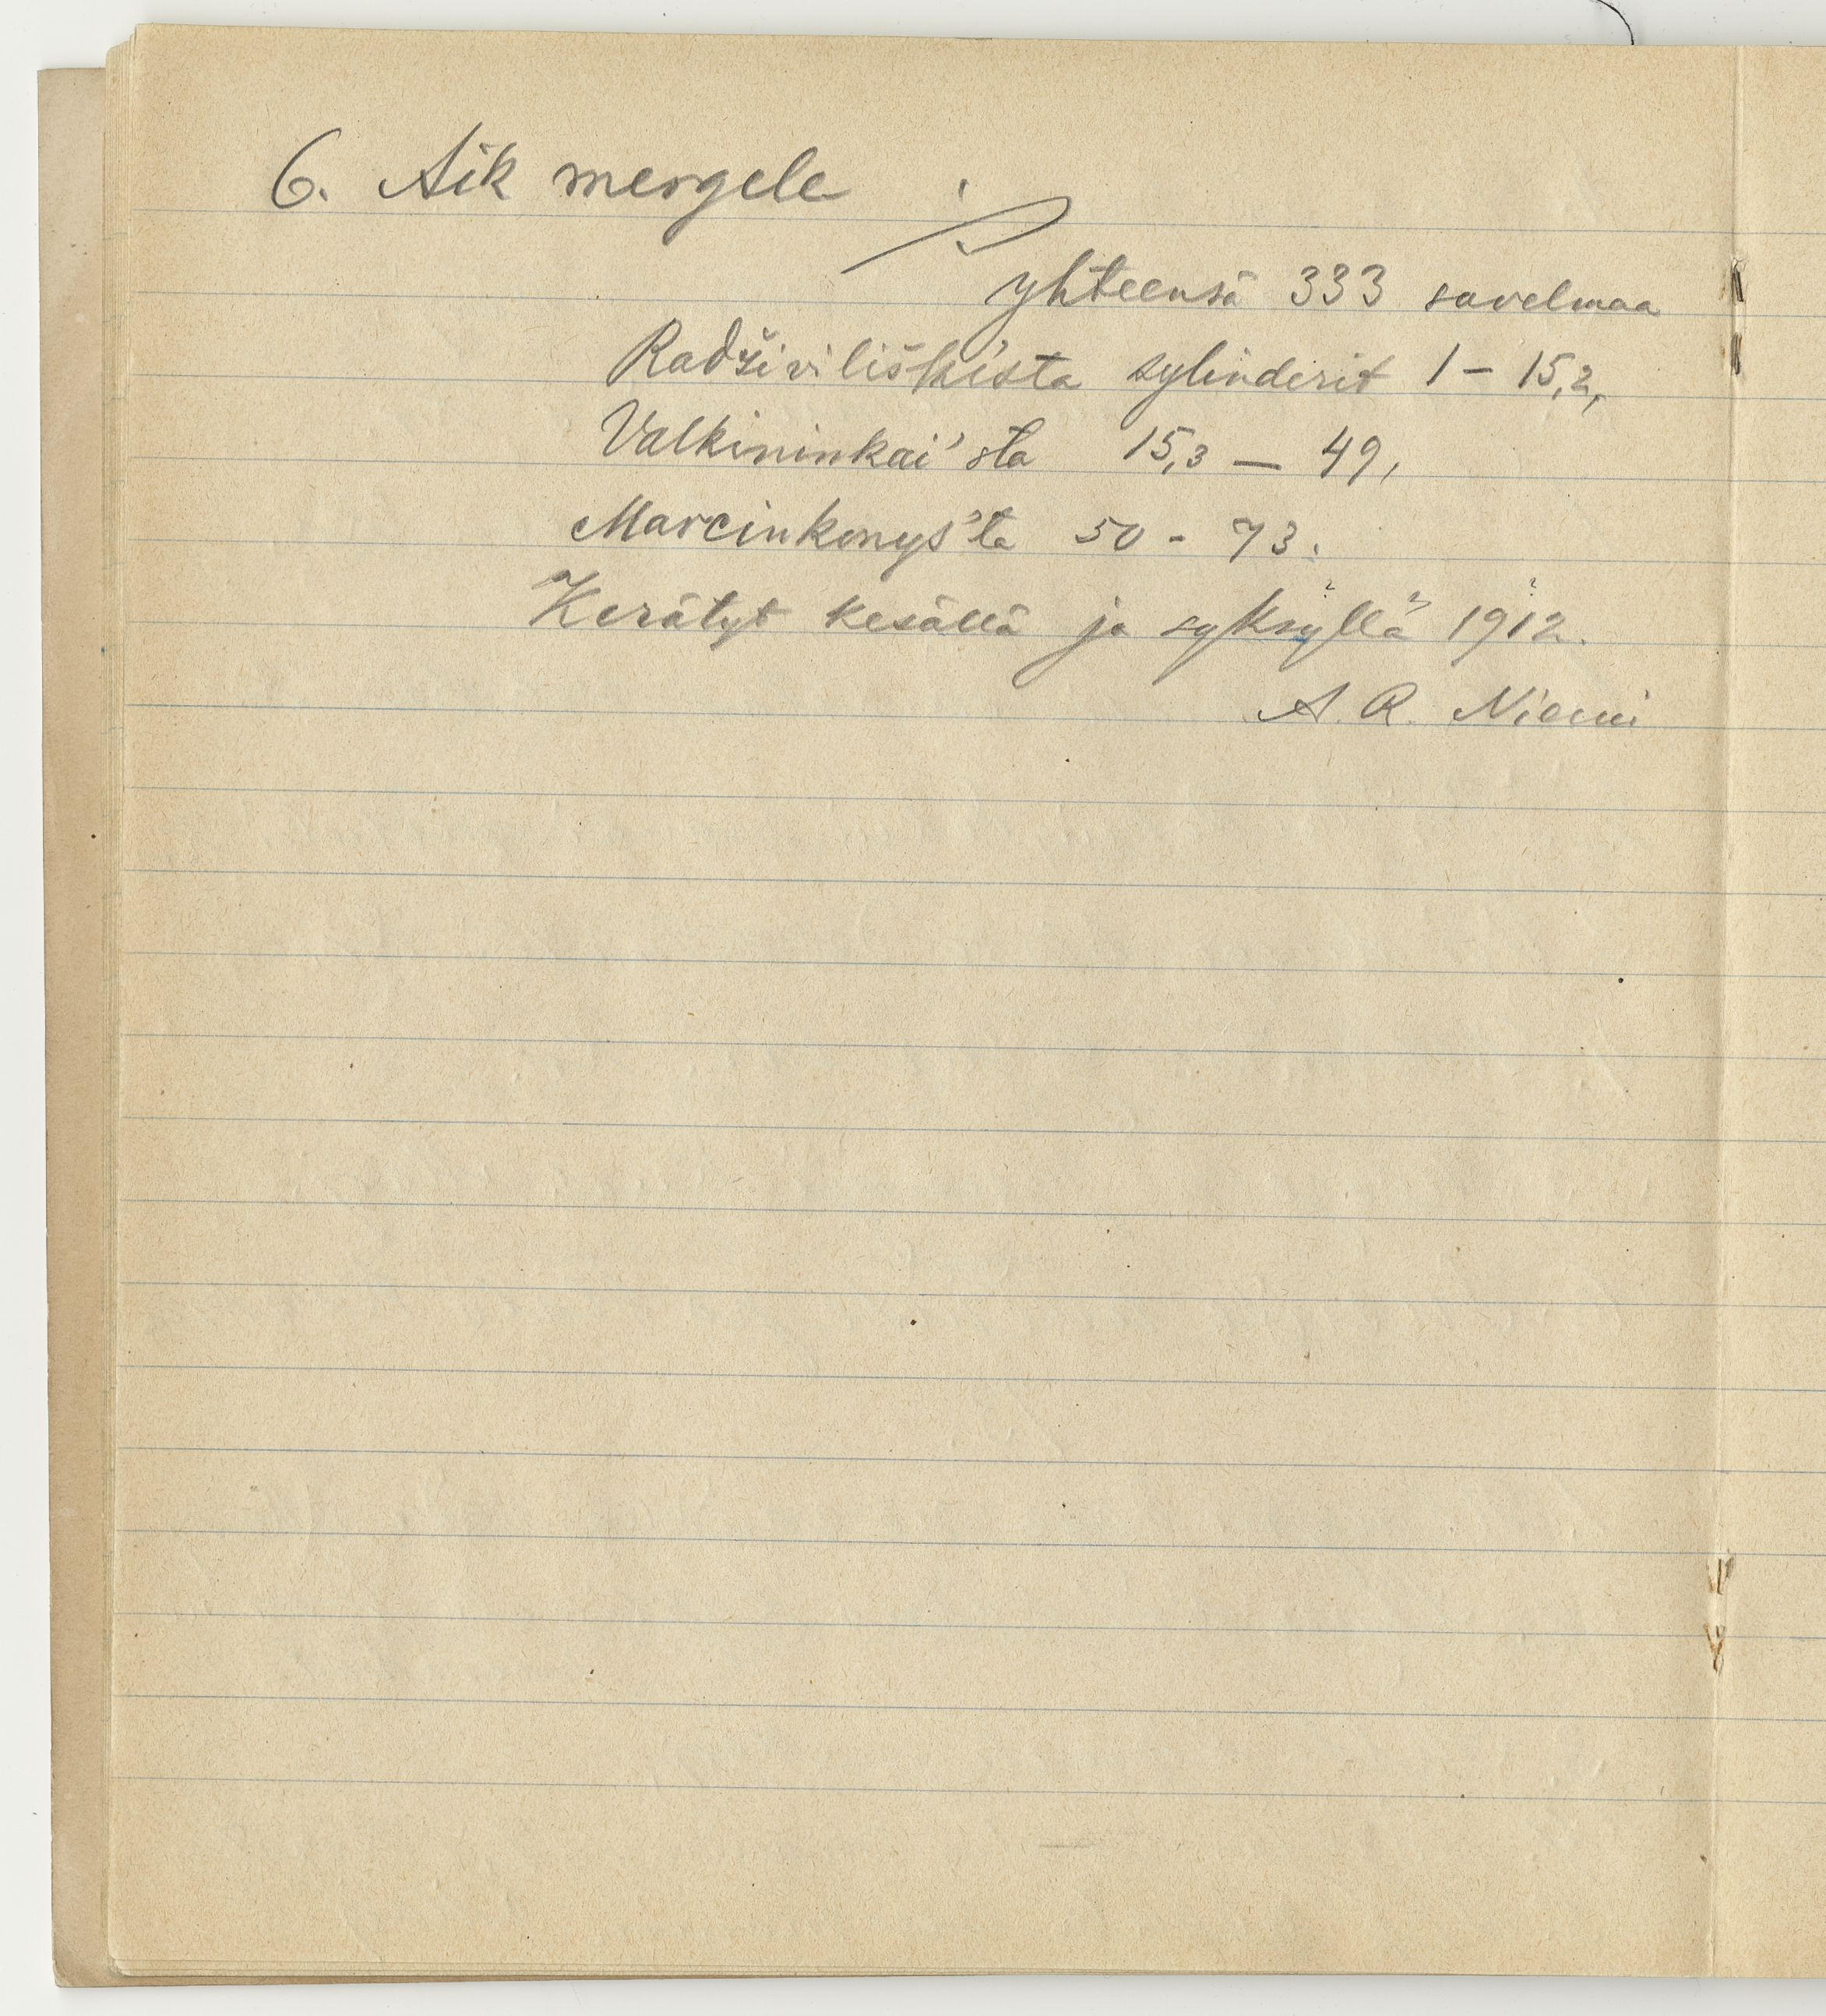 6. Aik mergele
yhteensä 333 savelmaa
Radživiliški'sta sylinderit 1 – 15,2,
Valkininkai'sta 15,3 — 49,
Marcinkonys'ta 50 - 73.
Kerätyt kesällä ja syksyllä 1912.
A. R. Niemi